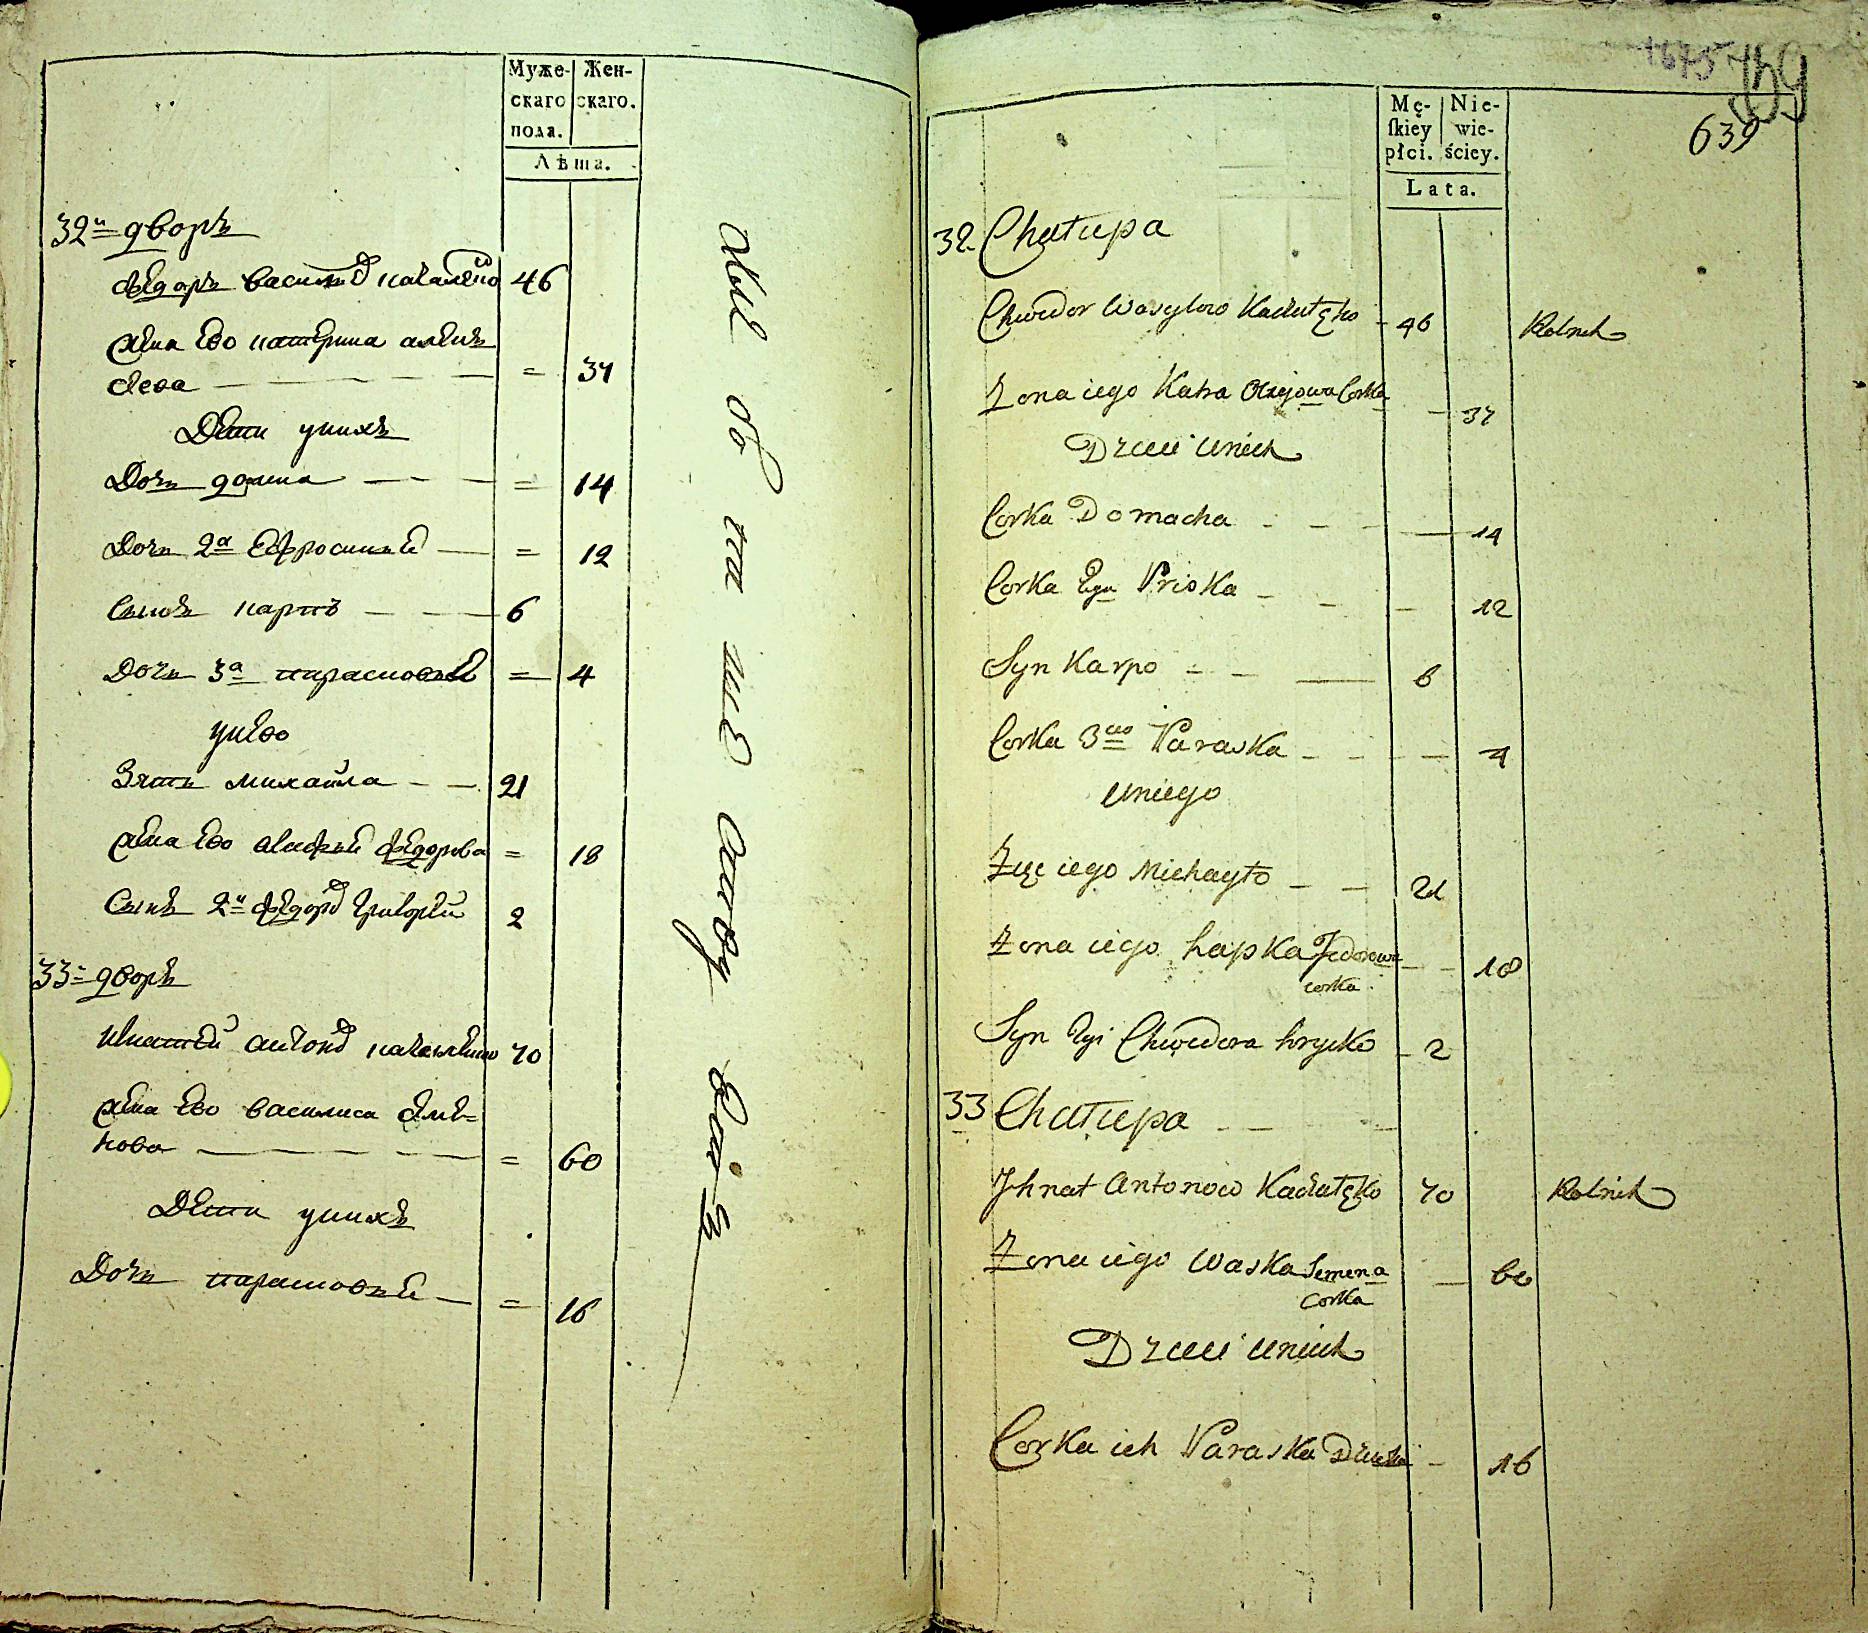 Муже- Жен-
скаго скаго.
пола.
Лѣта.
32й дворъ
Федоръ Васильев 46
жена его катерина алексѣ
ева = 37
Дети у них
Дочь домна = 14
Дочь 2я Ефросиния = 12
Сынъ карпъ 6
Дочь 3я парасковия = 4
у него
Зять михайла 21
жена его агафия федорова = 18
Сынъ 2й федора григорей 2
33й дворъ
игнатей антонов 70
жена его василиса семе-
нова = 60
Дети у нихъ
Дочь парасковия = 16
Mę- Nie-
skiey wie-
płci. ściey.
Lata.
639
32 Chałupa
Chwedor Wasylow Kadułęko 46 Rolnik
Zona iego Katra Olexjowa Corka 37
Dzieci unich
Corka Domacha 14
Corka 2ga Priska 12
Syn Karpo 6
Corka 3cio Paraska 4
uniego
Zięc iego Michayło 21
Zona iego hapka Fedorowa 18
corka
Syn 2gi Chwedora hrycko 2
33 Chałupa
Jhnat Antonow Kadułęko 70 Rolnik
Zona iego Waska Semena 60
Corka
Dzieci unich
Corka ich Paraska Dziewka 16